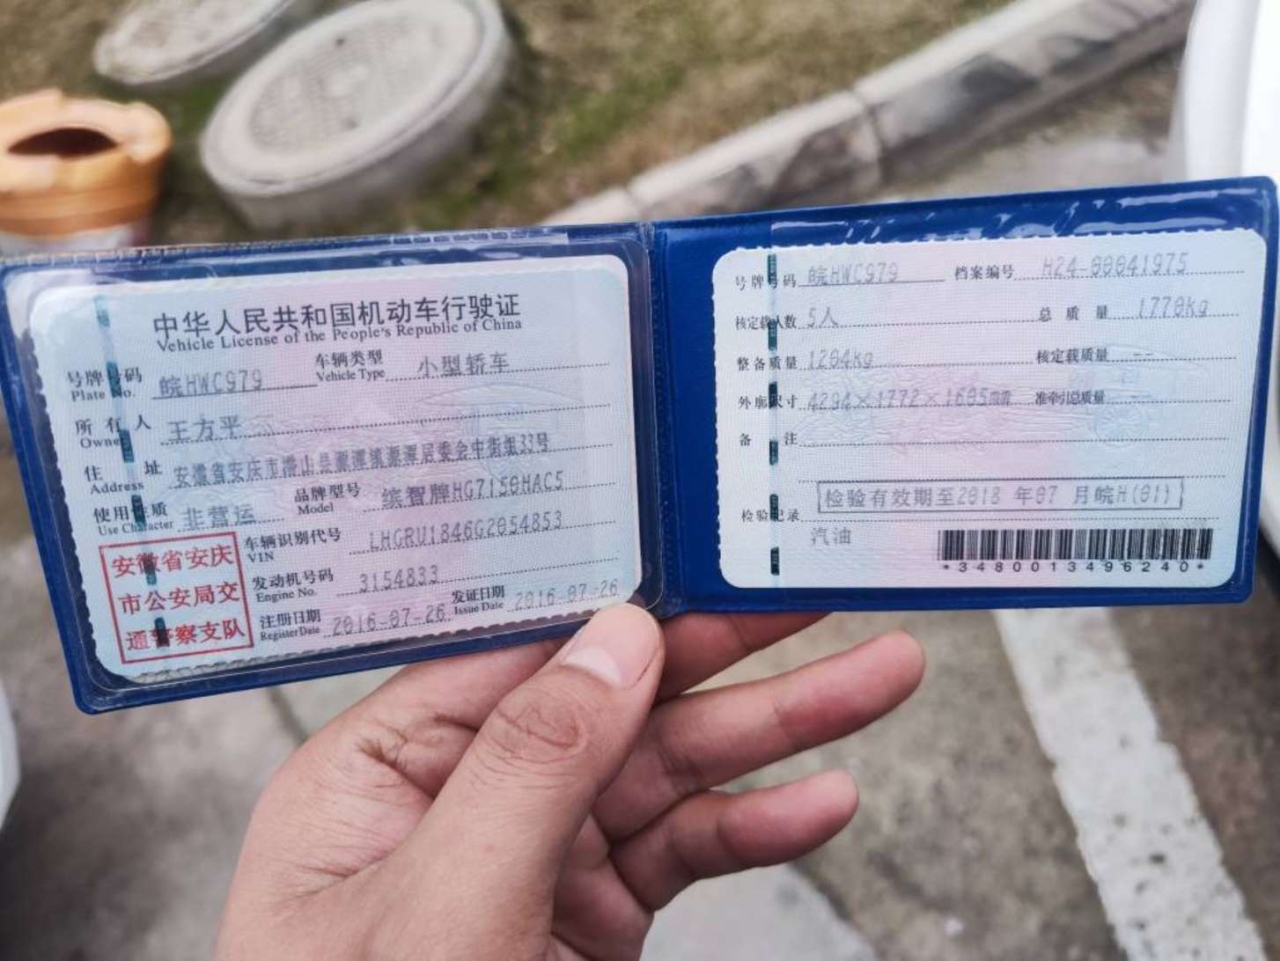 中华人民共和国机动车行驶证
Vehicle License of the People's Republic of China
号牌号码 皖HWC979 车辆类型 小型轿车
Plate No. Vehicle Type
所有人 王方平
Owner
住址 安徽省安庆市潜山县源潭镇源潭居委会中街组33号
Address
使用性质 非营运 品牌型号 缤智牌HG7150HAC5
Use Character Model
车辆识别代号 LHGRU1846G2054853
VIN
发动机号码 3154833
Engine No.
注册日期 2016-07-26 发证日期 2016-07-26
Register Date Issue Date
安徽省安庆
市公安局交
通警察支队
号牌号码 皖HWC979 档案编号 H24-00041975
核定载人数 5人 总质量 1770kg
整备质量 1284kg 核定载质量 --
外廓尺寸 4294×1772×1605mm 准牵引总质量 --
备注
检验有效期至2018 年07 月皖H(01)
检验记录
汽油
*3480013496240*